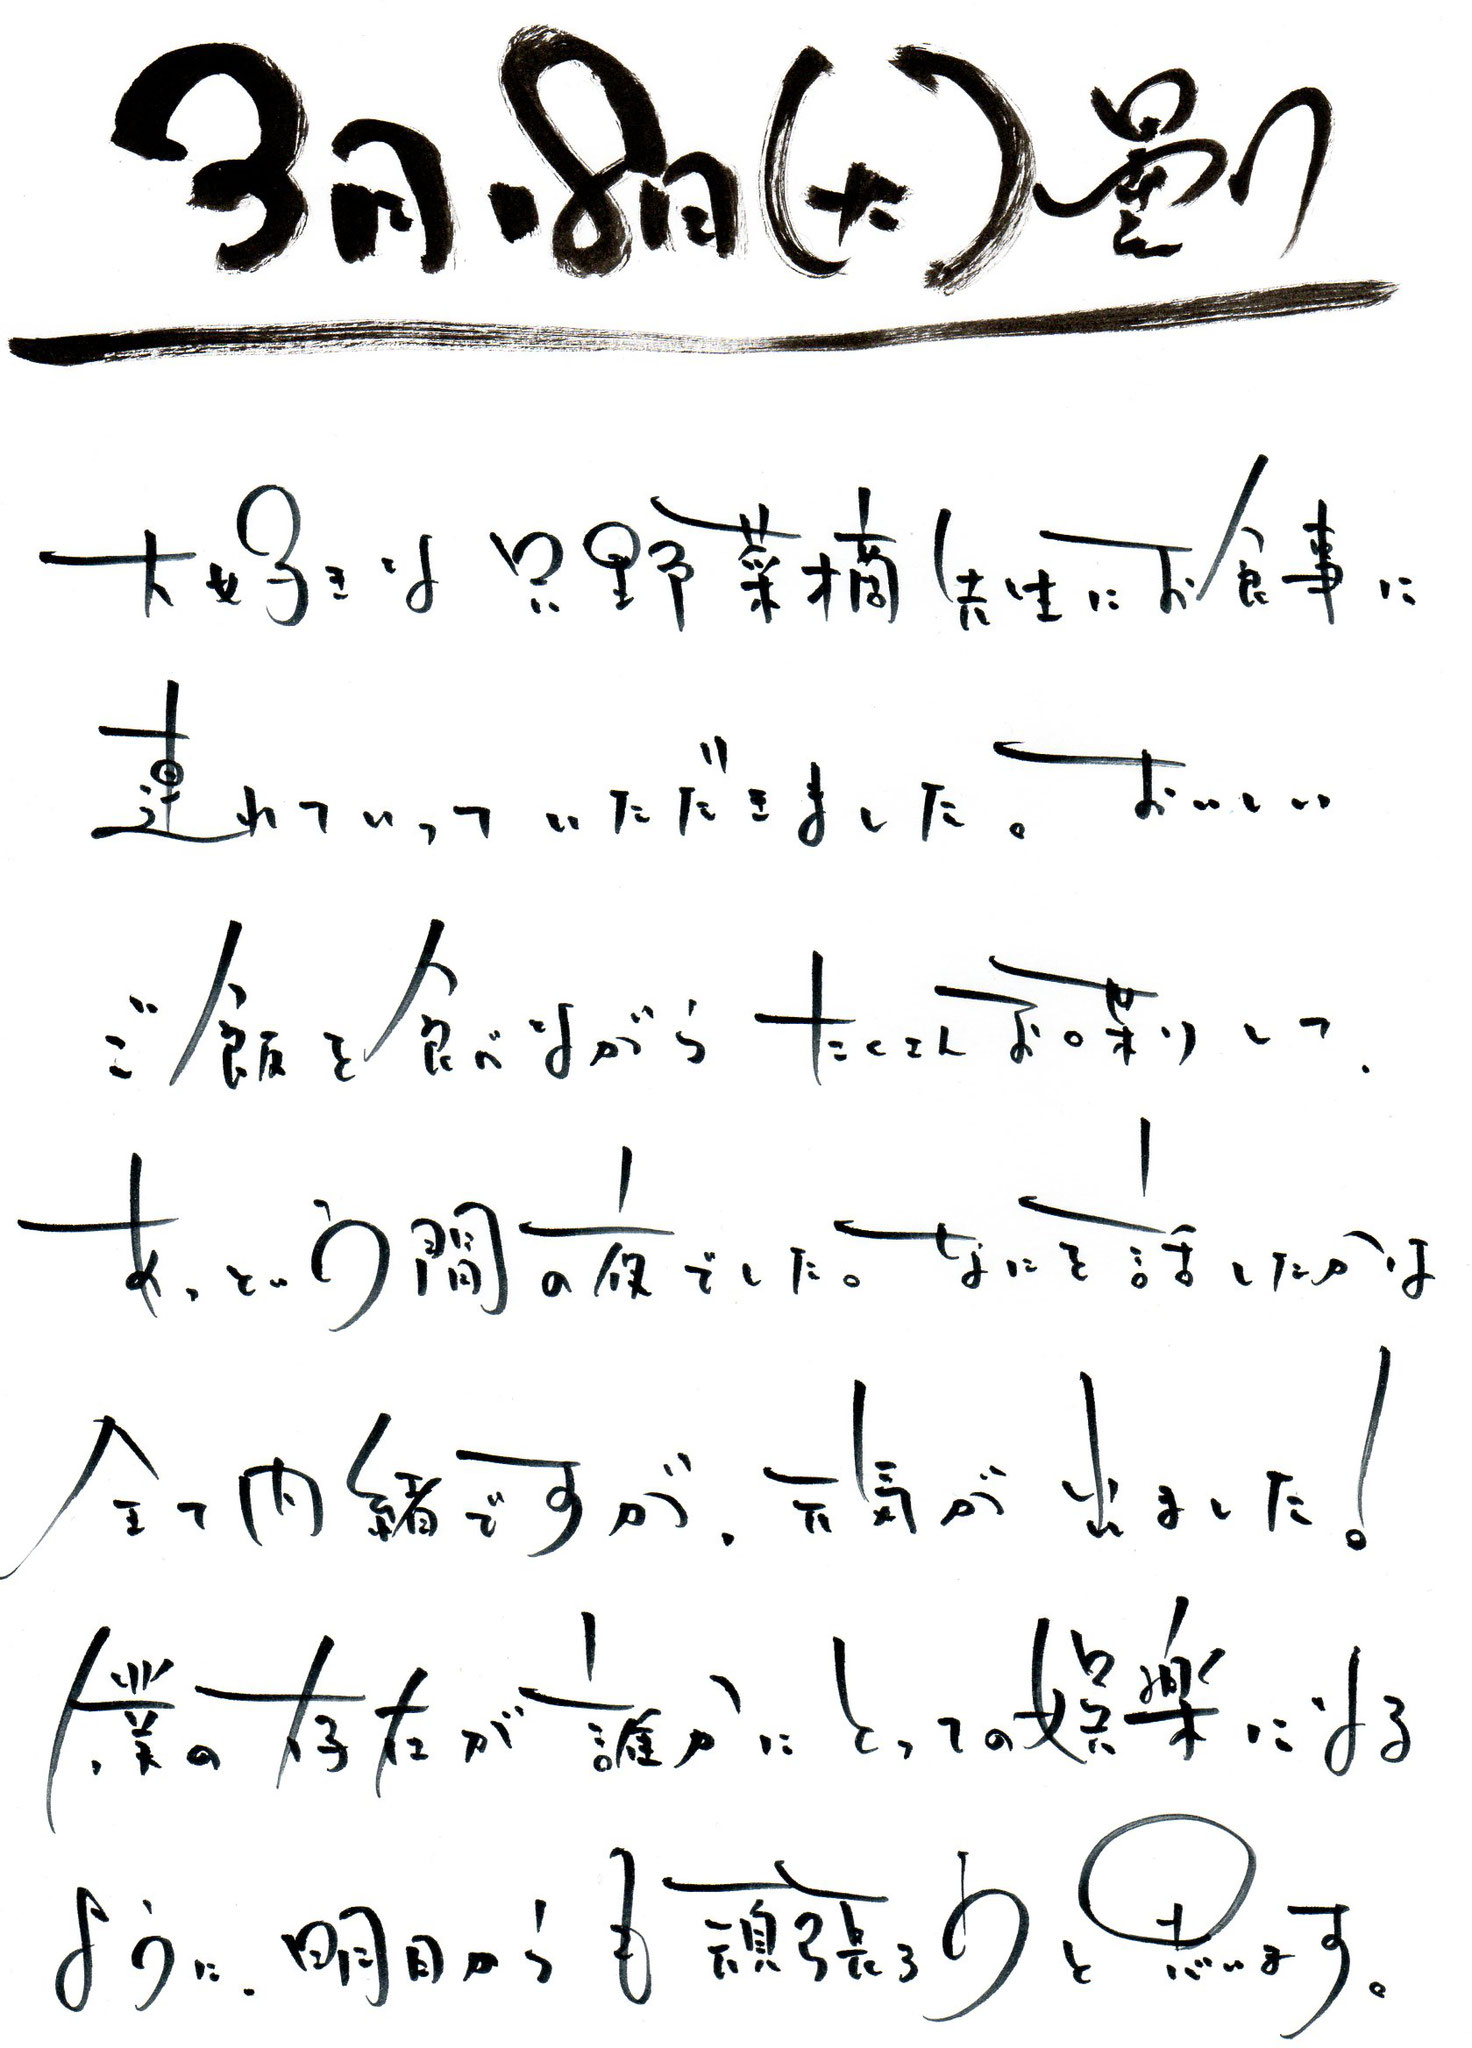 3月18日(土)曇り
大好きな只野菜摘先生にお食事に
連れていっていただきました。おいしい
ご飯を食べながらたくさんお喋りして、
あっという間の夜でした。なにを話したかは
全て内緒ですが、元気が出ました！
僕の存在が誰かにとっての娯楽になる
ように、明日からも頑張ろうと思います。